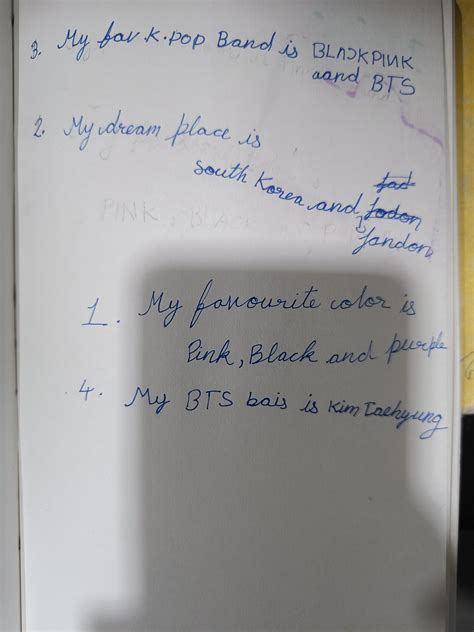 3. My fav K.pop Band is BLACKPINK
aand BTS
2. My dream place is
South Korea and
London
1. My favourite color is
Pink, Black and purple
4. My BTS bais is Kim Taehyung